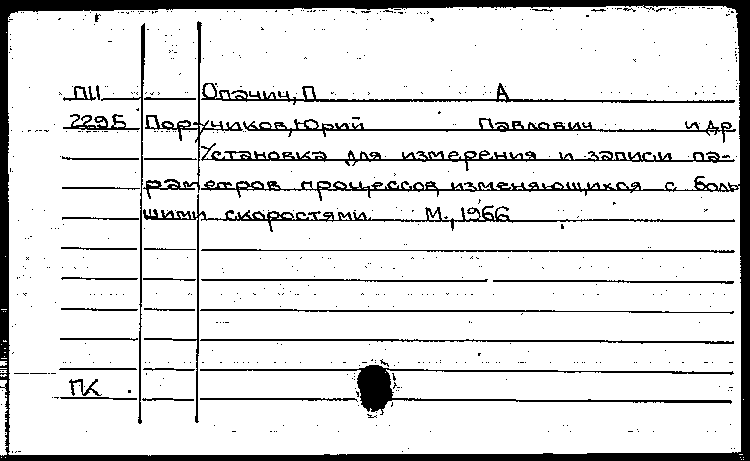 ПЦ Опачич, П А
229Б Портчиков, Юрий Павлович и др
Установка для измерения и записи па-
раметров процессов, изменяющихся с боль
шими скоростями. М., 1966
ПК